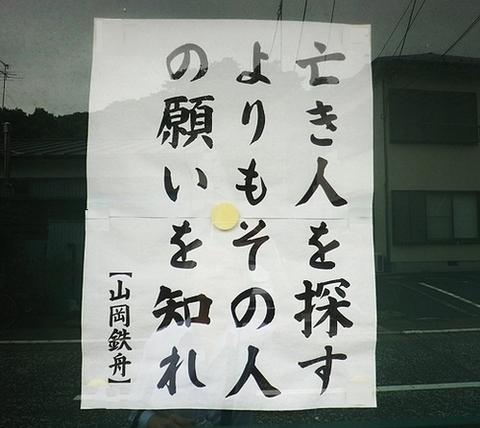 亡き人を探す
よりもその人
の願いを知れ
【山岡鉄舟】